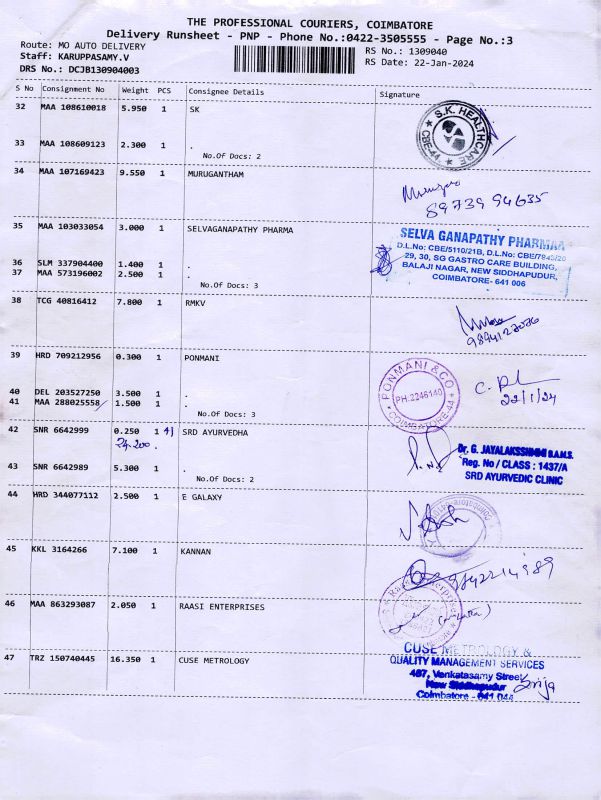 THE PROFESSIONAL COURIERS, COIMBATORE
Delivery Runsheet - PNP - Phone No.:0422-3505555 - Page No.:3
Route: MO AUTO DELIVERY
RS No.: 1309040
Staff: KARUPPASAMY.V
RS Date: 22-Jan-2024
DRS No.: DCJB130904003
S No Consignment No Weight PCS Consignee Details Signature
32 MAA 108610018 5.950 1 SK
S.K. HEALTHCARE
CBE-44
33 MAA 108609123 2.300 1 .
No.Of Docs: 2
34 MAA 107169423 9.550 1 MURUGANTHAM
89739 94635
35 MAA 103033054 3.000 1 SELVAGANAPATHY PHARMA
SELVA GANAPATHY PHARMAA
D.L.No: CBE/5110/21B, D.L.No: CBE/7943/20
29, 30, SG GASTRO CARE BUILDING,
BALAJI NAGAR, NEW SIDDHAPUDUR,
COIMBATORE- 641 006
36 SLM 337904400 1.400 1 .
37 MAA 573196002 2.500 1 .
No.Of Docs: 3
38 TCG 40816412 7.800 1 RMKV
39 HRD 709212956 0.300 1 PONMANI
PONMANI & CO
PH:2246140
COIMBATORE-44
22/1/24
40 DEL 203527250 3.500 1 .
41 MAA 288025558 1.500 1 .
No.Of Docs: 3
42 SNR 6642999 0.250 1 SRD AYURVEDHA
24.200
Dr. G. JAYALAKSSHMI B.A.M.S.
Reg. No / CLASS : 1437/A
SRD AYURVEDIC CLINIC
43 SNR 6642989 5.300 1 .
No.Of Docs: 2
44 HRD 344077112 2.500 1 E GALAXY
45 KKL 3164266 7.100 1 KANNAN
9842214989
46 MAA 863293087 2.050 1 RAASI ENTERPRISES
47 TRZ 150740445 16.350 1 CUSE METROLOGY
CUSE METROLOGY &
QUALITY MANAGEMENT SERVICES
467, Venkatasamy Street
New Siddhapudur
Coimbatore - 641 044
Srija